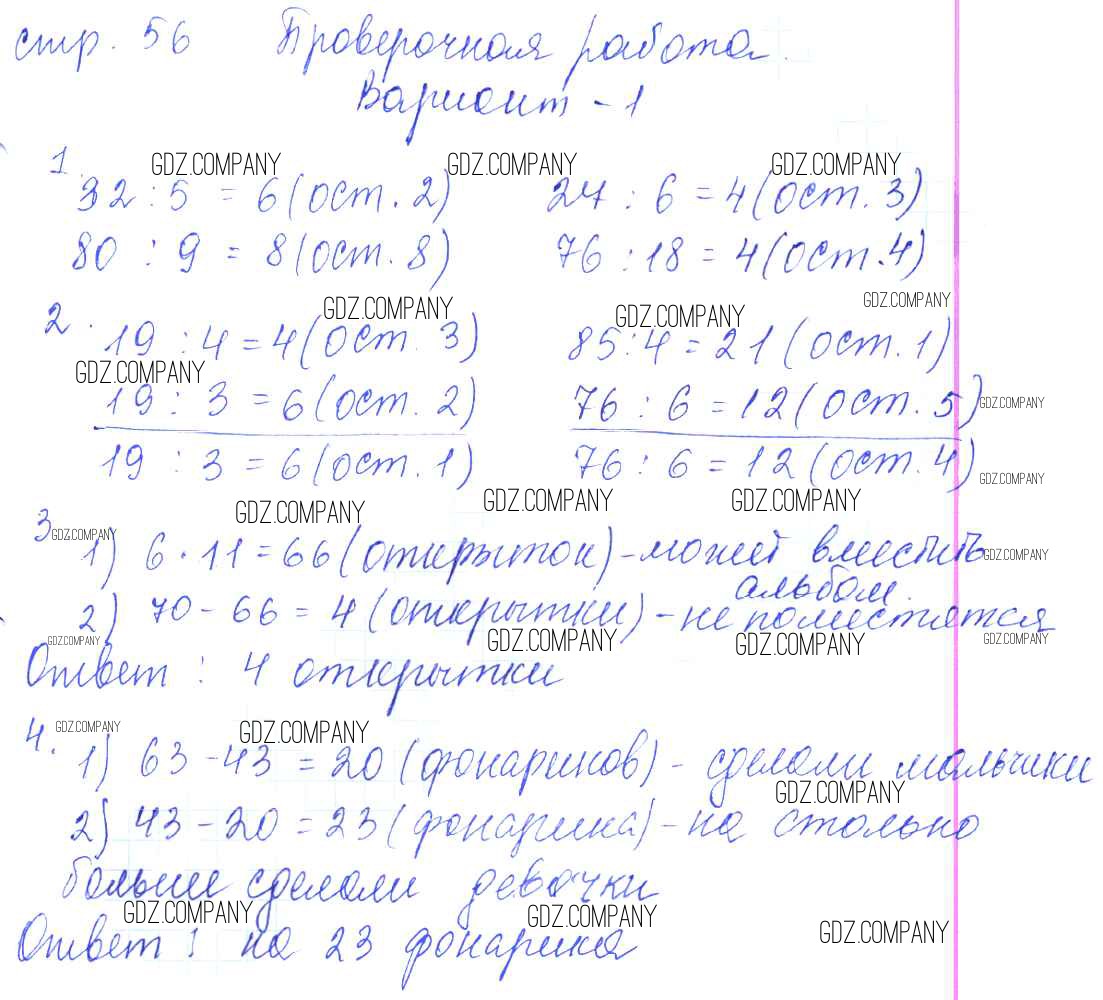 стр. 56 Проверочная работа.
Вариант - 1
1. GDZ.COMPANY GDZ.COMPANY GDZ.COMPANY
32 : 5 = 6 (ост. 2) 27 : 6 = 4 (ост. 3)
80 : 9 = 8 (ост. 8) 76 : 18 = 4 (ост. 4)
GDZ.COMPANY GDZ.COMPANY GDZ.COMPANY
2. 19 : 4 = 4 (ост. 3) 85 : 4 = 21 (ост. 1)
GDZ.COMPANY
19 : 3 = 6 (ост. 2) 76 : 6 = 12 (ост. 5) GDZ.COMPANY
19 : 3 = 6 (ост. 1) 76 : 6 = 12 (ост. 4) GDZ.COMPANY
GDZ.COMPANY GDZ.COMPANY GDZ.COMPANY
3. GDZ.COMPANY
1) 6 · 11 = 66 (открыток) - может вместить GDZ.COMPANY
альбом.
2) 70 - 66 = 4 (открытки) - не поместятся
GDZ.COMPANY GDZ.COMPANY GDZ.COMPANY GDZ.COMPANY
Ответ : 4 открытки
4. GDZ.COMPANY GDZ.COMPANY
1) 63 - 43 = 20 (фонариков) - сделали мальчики
GDZ.COMPANY
2) 43 - 20 = 23 (фонарика) - на столько
больше сделали девочки
GDZ.COMPANY GDZ.COMPANY GDZ.COMPANY
Ответ : на 23 фонарика